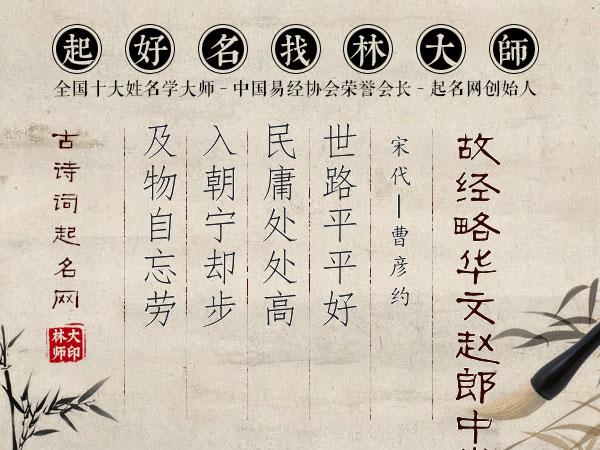 起好名找林大師
全国十大姓名学大师 - 中国易经协会荣誉会长 - 起名网创始人
故经略华文赵郎中
宋代—曹彦约
世路平平好
民庸处处高
入朝宁却步
及物自忘劳
古诗词起名网
大印
林师